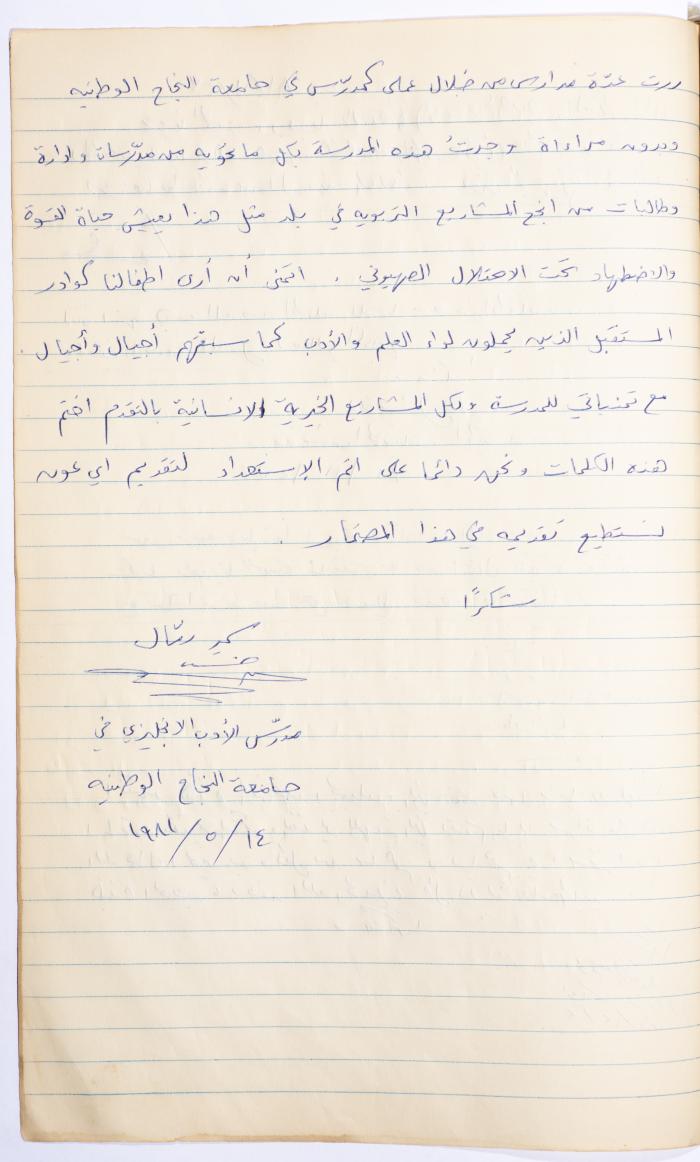 زرت عدّة مدارس من خلال عملي كمدرّس في جامعة النجاح الوطنيه
وبدون مراءاة وجدتُ هذه المدرسة بكل ما تحويه من مدرّسات وادارة
وطالبات من انجح المشاريع التربويه في بلد مثل هذا يعيش حياة القسوة
والاضطهاد تحت الاحتلال الصهيوني . اتمنى أن أرى اطفالنا كوادر
المستقبل الذين يحملون لواء العلم والأدب كما سبقتهم أجيال وأجيال .
مع تمنياتي للمدرسة ولكل المشاريع الخيرية الانسانية بالتقدم اختم
هذه الكلمات ونحن دائما على اتم الإستعداد لتقديم اي عون
نستطيع تقديمه في هذا المضمار .
شكرًا
سمير
مدرّس الأدب الانجليزي في
جامعة النجاح الوطنيه
١٤ / ٥ / ١٩٨١